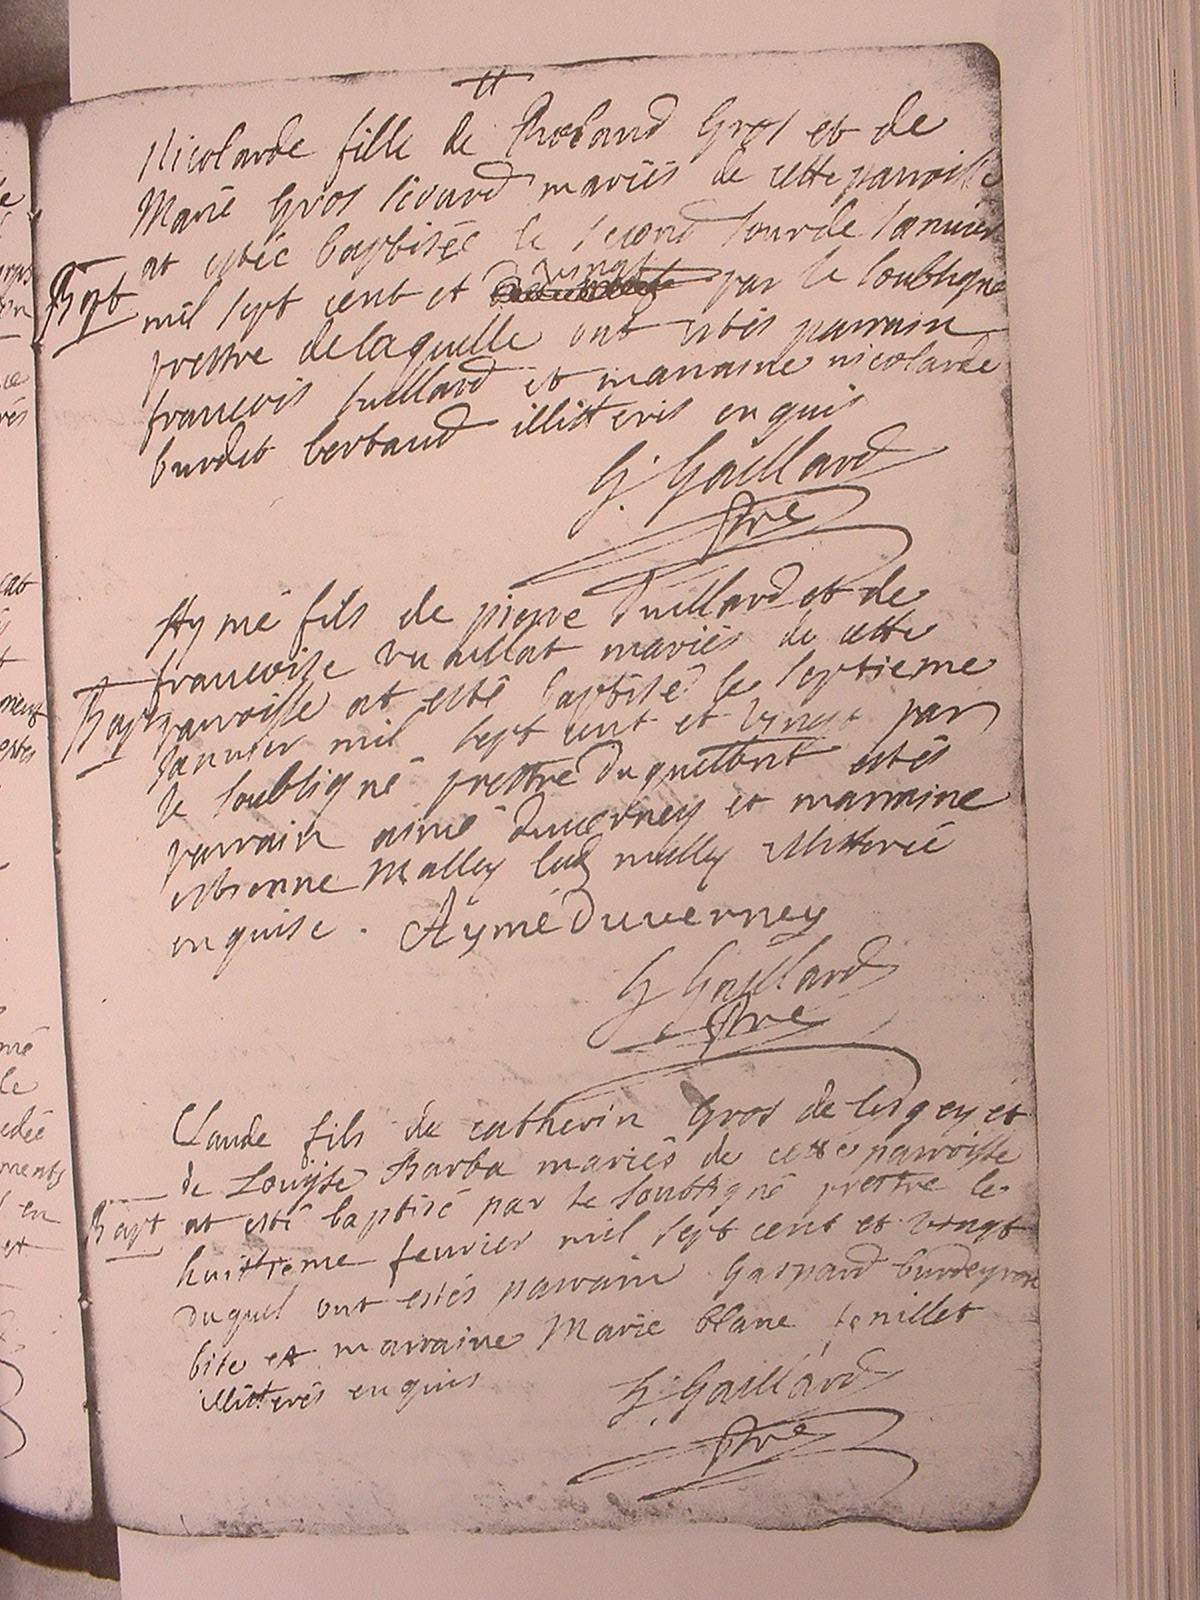 Nicolarde fille de Roland Gros et de
Marie Gros mariés de cette parroisse
at estéé baptiséé le second Jour de Janvier
Bapt
mil sept cent et vingt par le soubsigne
prestre de laquelle ont estés parrain
francois Duillard et marraine nicolarde
burdet bertaud illitterés enquis
G. Gaillard
Ptre
Aymé fils de pierre Duillard et de
francoise Vuaillat mariés de cette
Bapt
parroisse at esté baptisé le septieme
Janvier mil sept cent et vingt par
le soubsigné prestre duquel ont estés
parrain aimé duverney et marraine
estienne Malley mally illitteréé
enquise. Aymé Duverney
G Gaillard
Ptre
Claude fils de catherin Gros de et
de Louyse Barba mariés de cette parroisse
Bapt
at esté baptisé par le soubsigné prestre le
huittieme fevrier mil sept cent et vingt
duquel ont estés parrain Gaspard burdeyron
bise et marraine Marie blanc
illitterés enquis
G. Gaillard
Ptre